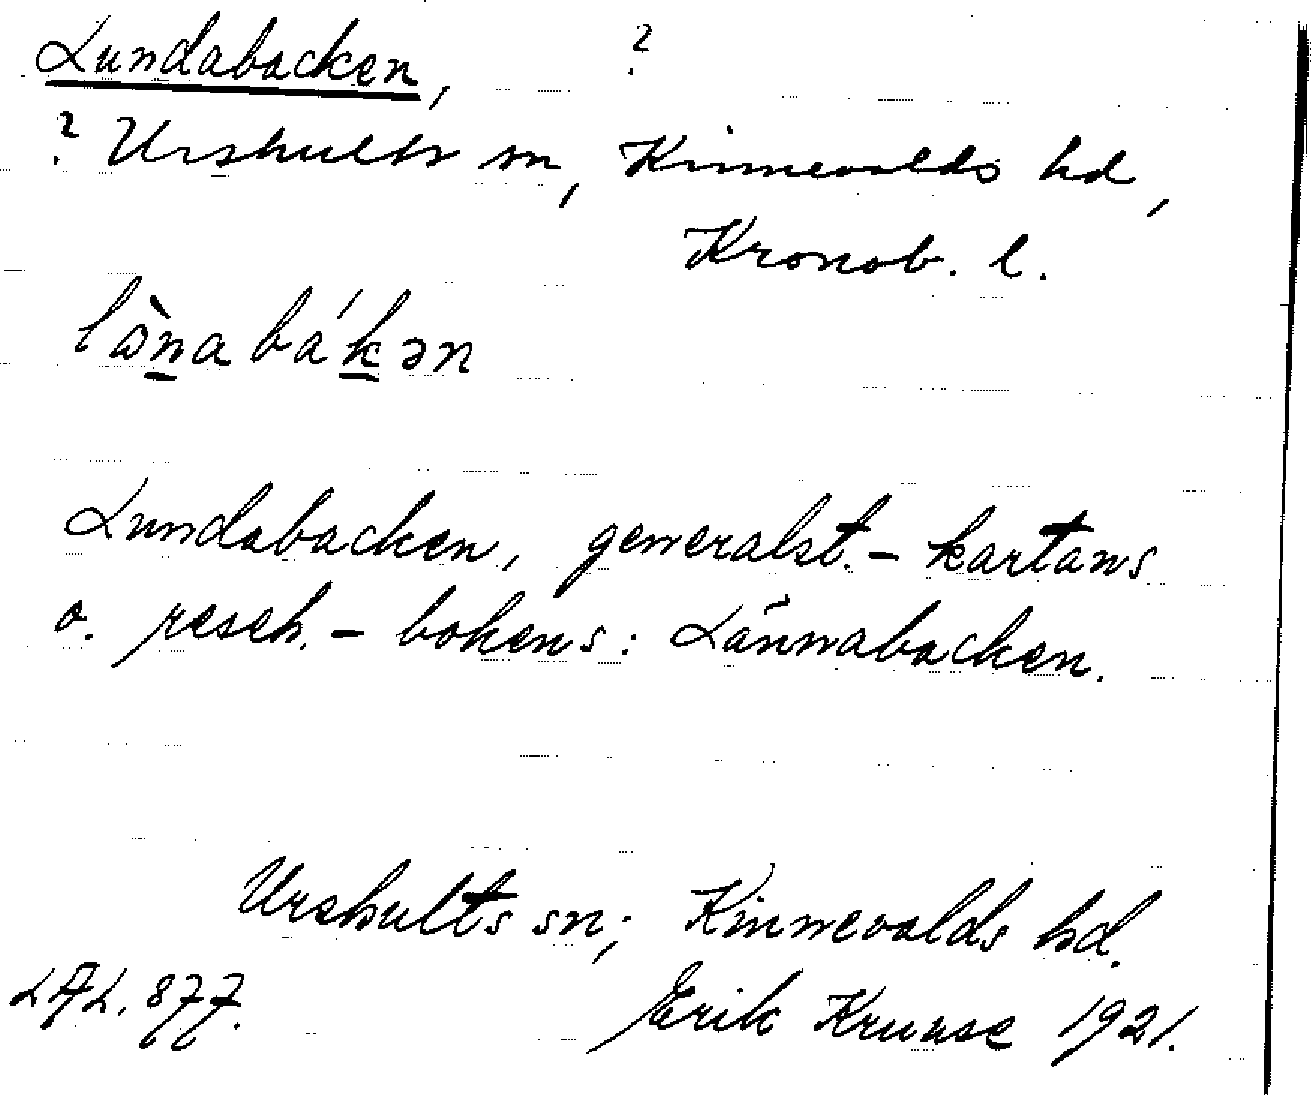 Lundabacken, ?
? Urshults sn, Kinnevalds hd,
Kronob. l.
lɷ̀nabákən
Lundabacken, generalst.- kartans
o. reseh.- bokens: Lännabacken.
Urshults sn; Kinnevalds hd.
LAL. 877. Erik Kruuse 1921.